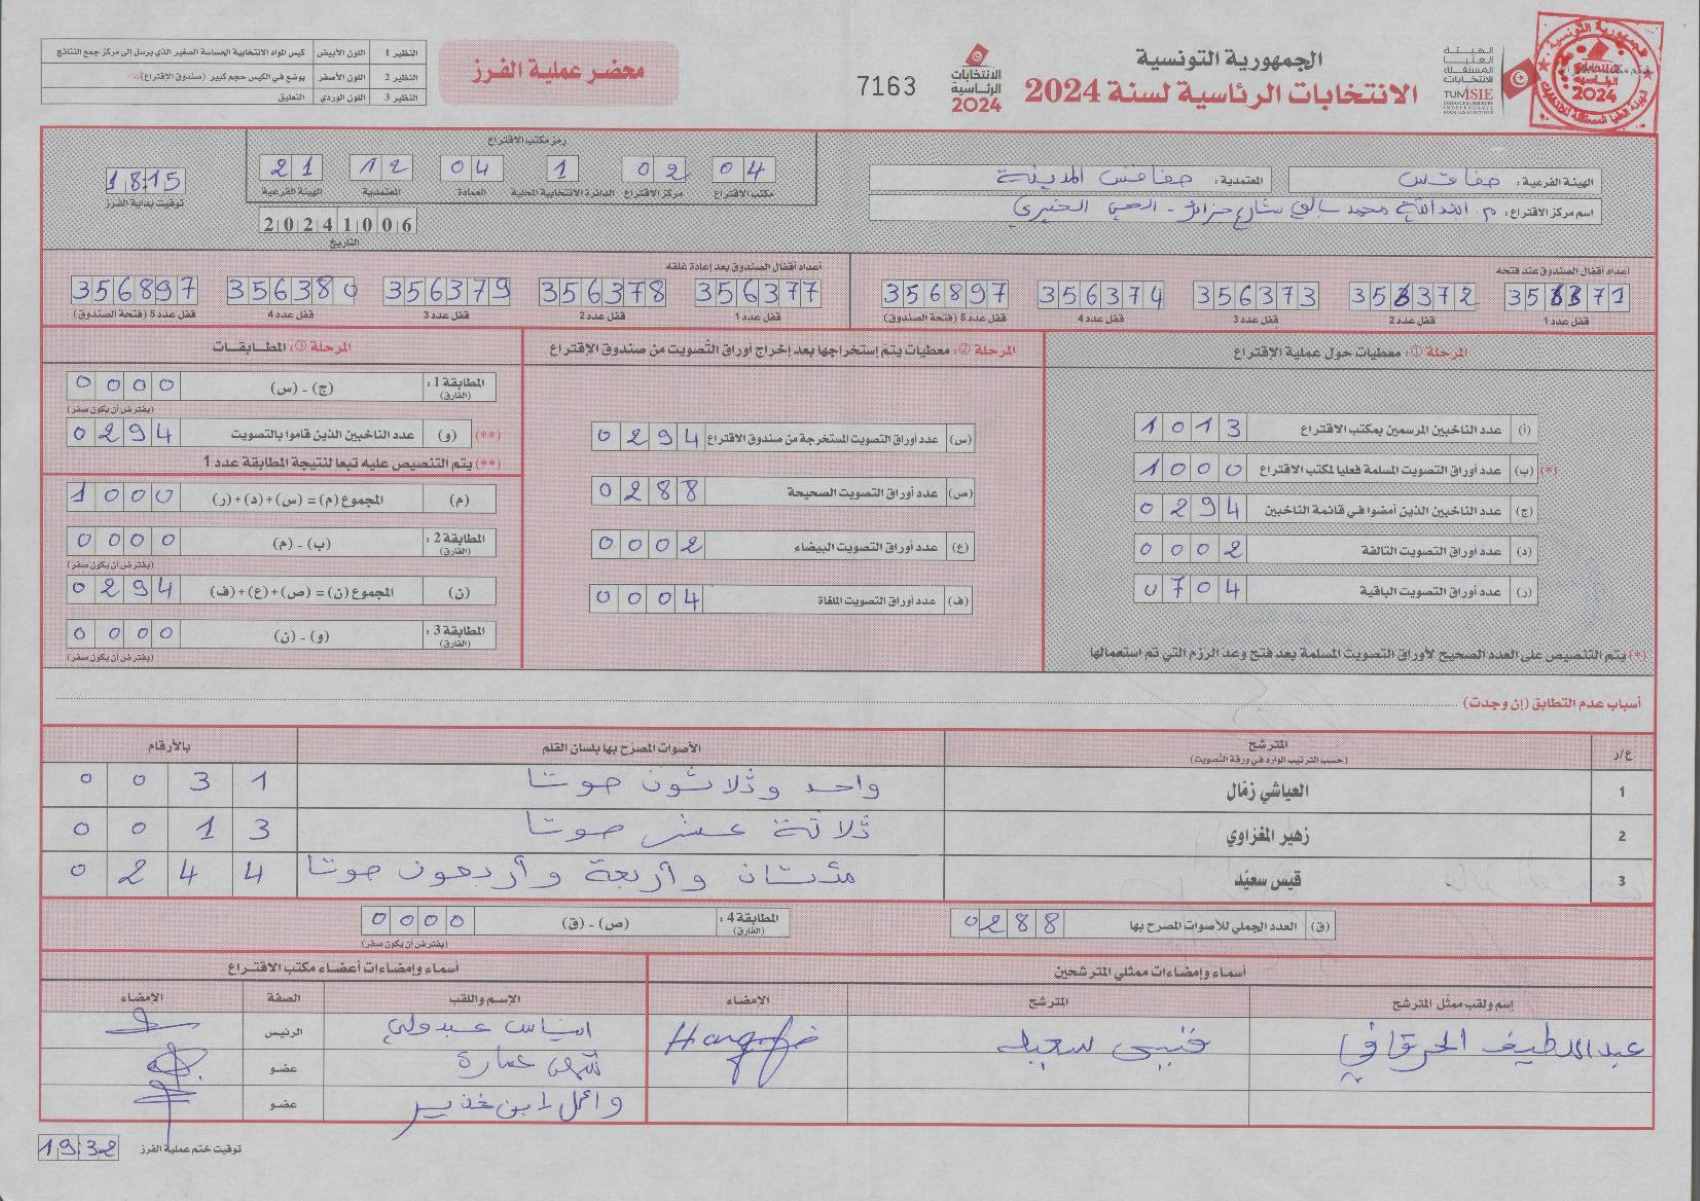 الجمهورية التونسية
الانتخابات الرئاسية لسنة 2024
الهيئة العليا المستقلة للانتخابات
TUNISIE
الانتخابات الرئاسية 2024
7163
محضر عملية الفرز
النظير 1 اللون الأبيض كيس المواد الانتخابية الحساسة الصغير الذي يرسل إلى مركز جمع النتائج
النظير 2 اللون الأصفر يوضع في الكيس حجم كبير (صندوق الاقتراع)
النظير 3 اللون الوردي التعليق
الهيئة الفرعية: صفاقس
المعتمدية: صفاقس المدينة
اسم مركز الاقتراع: م. محمد شارع - الحي الخيري
رمز مكتب الاقتراع
04 02 1 04 12 21
مكتب الاقتراع مركز الاقتراع الدائرة الانتخابية المحلية العمادة المعتمدية الهيئة الفرعية
20241006
التاريخ
18:15
توقيت بداية الفرز
أعداد أقفال الصندوق عند فتحه
356371 356372 356373 356374 356897
قفل عدد 1 قفل عدد 2 قفل عدد 3 قفل عدد 4 قفل عدد 5 (فتحة الصندوق)
أعداد أقفال الصندوق بعد إعادة غلقه
356377 356378 356379 356380 356897
قفل عدد 1 قفل عدد 2 قفل عدد 3 قفل عدد 4 قفل عدد 5 (فتحة الصندوق)
المرحلة ①: معطيات حول عملية الإقتراع
(أ) عدد الناخبين المرسمين بمكتب الاقتراع 1013
(*) (ب) عدد أوراق التصويت المسلمة فعليا لمكتب الاقتراع 1000
(ج) عدد الناخبين الذين أمضوا في قائمة الناخبين 0294
(د) عدد أوراق التصويت التالفة 0002
(ر) عدد أوراق التصويت الباقية 0704
(*) يتم التنصيص على العدد الصحيح لأوراق التصويت المسلمة بعد فتح وعد الرزم التي تم استعمالها
المرحلة ②: معطيات يتم إستخراجها بعد إخراج أوراق التصويت من صندوق الإقتراع
(س) عدد أوراق التصويت المستخرجة من صندوق الاقتراع 0294
(ص) عدد أوراق التصويت الصحيحة 0288
(ع) عدد أوراق التصويت البيضاء 0002
(ف) عدد أوراق التصويت الملغاة 0004
المرحلة ③: المطابقات
المطابقة 1: (الفارق) (ج) - (س) 0000
(يفترض أن يكون صفر)
(**) (و) عدد الناخبين الذين قاموا بالتصويت 0294
(**) يتم التنصيص عليه تبعا لنتيجة المطابقة عدد 1
(م) المجموع (م) = (س) + (د) + (ر) 1000
المطابقة 2: (الفارق) (ب) - (م) 0000
(يفترض أن يكون صفر)
(ن) المجموع (ن) = (ص) + (ع) + (ف) 0294
المطابقة 3: (الفارق) (و) - (ن) 0000
(يفترض أن يكون صفر)
أسباب عدم التطابق (إن وجدت)
ع/ر المترشح (حسب الترتيب الوارد في ورقة التصويت) الأصوات المصرح بها بلسان القلم بالأرقام
1 العياشي زمّال واحد وثلاثون صوتا 0031
2 زهير المغزاوي ثلاثة عشر صوتا 0013
3 قيس سعيّد مئتان وأربعة وأربعون صوتا 0244
(ق) العدد الجملي للأصوات المصرح بها 0288
المطابقة 4: (الفارق) (ص) - (ق) 0000
(يفترض أن يكون صفر)
أسماء وإمضاءات ممثلي المترشحين
إسم ولقب ممثل المترشح المترشح الامضاء
عبد اللطيف الحرقافي قيس سعيد
أسماء وإمضاءات أعضاء مكتب الاقتراع
الإسم واللقب الصفة الامضاء
ايناس عبدولي الرئيس
عمارة عضو
وائل ابن خذير عضو
توقيت ختم عملية الفرز 19:32